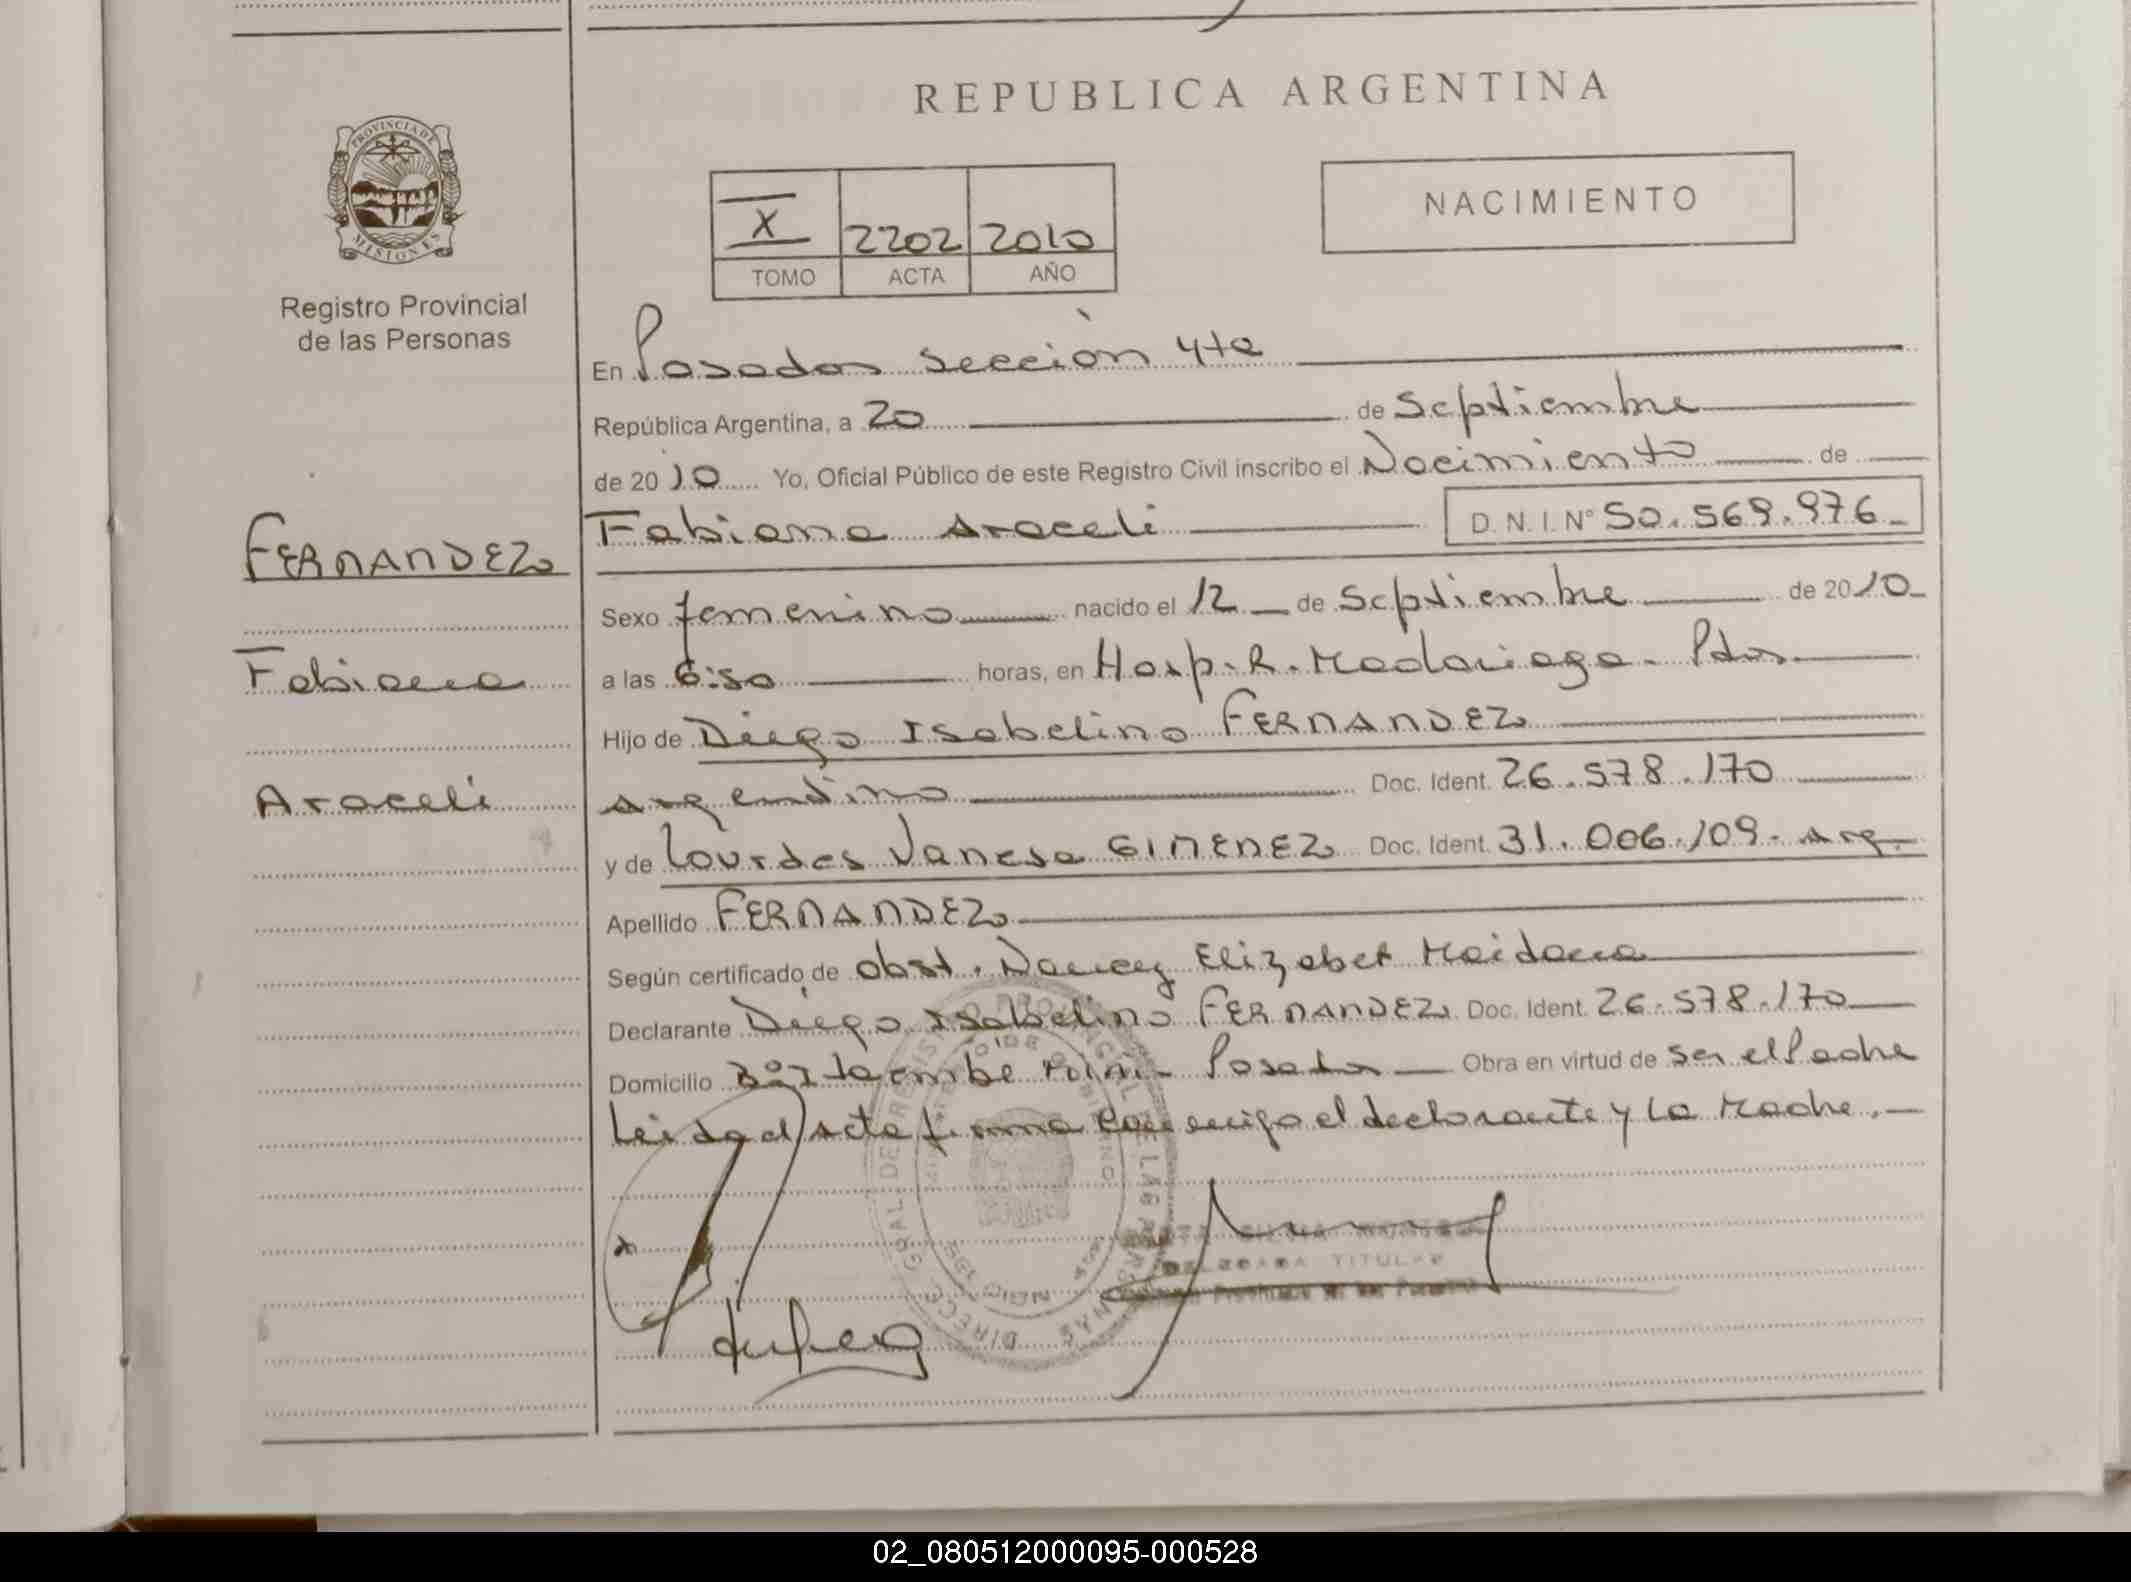 REPUBLICA ARGENTINA
PROVINCIA DE
MISIONES
Registro Provincial
de las Personas
X 2202 2010
TOMO ACTA AÑO
NACIMIENTO
En Posadas sección 4ta
República Argentina, a 20 de Septiembre
de 2010 Yo, Oficial Público de este Registro Civil inscribo el Nacimiento de
FERNANDEZ
Fabiana Araceli D.N.I. Nº 50.569.976
Sexo femenino nacido el 12 de Septiembre de 2010
Fabiana
a las 6:50 horas, en Hosp. R. Madariaga - Pdas.
Hijo de Diego Isabelino FERNANDEZ
Araceli
argentino Doc. Ident. 26.578.170
y de Lourdes Vanesa GIMENEZ Doc. Ident. 31.006.109 - arg.
Apellido FERNANDEZ
Según certificado de obst. Nancy Elizabet Maidana
Declarante Diego Isabelino FERNANDEZ Doc. Ident. 26.578.170
Domicilio Posadas Obra en virtud de ser el Padre
Leída el acta firma conmigo el declarante y la Madre.
TITULAR
02_080512000095-000528